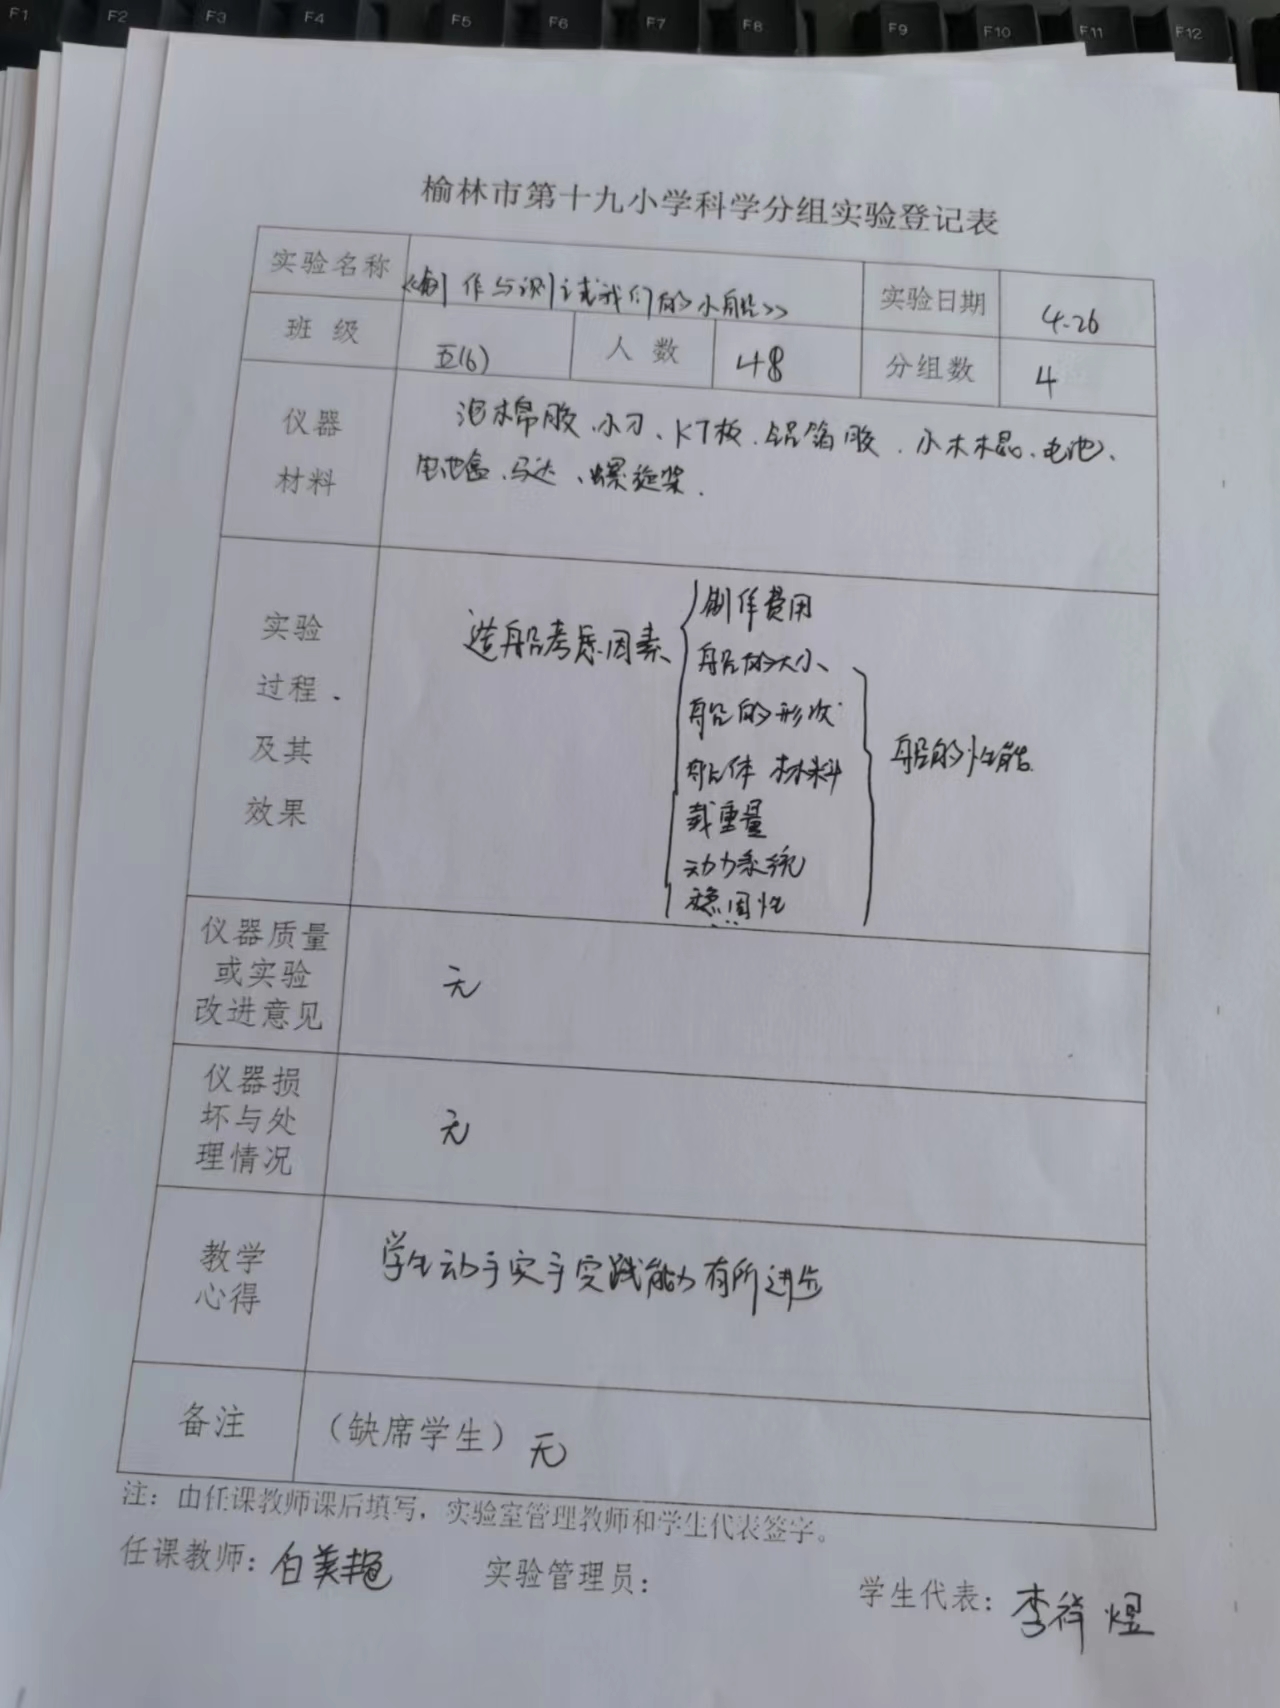 F1 F2 F3 F4 F5 F6 F7 F8 F9 F10 F11 F12
榆林市第十九小学科学分组实验登记表
实验名称 《制作与测试我们的小船》 实验日期 4.26
班级 五(6) 人数 48 分组数 4
仪器
材料
泡棉胶、小刀、KT板、铝箔胶、小木棍、电池、
电池盒、马达、螺旋桨.
实验
过程.
及其
效果
造船考虑因素
制作费用
船的大小、
船的形状
船体 材料
载重量
动力系统
稳固性
船的性能.
仪器质量
或实验
改进意见
无
仪器损
坏与处
理情况
无
教学
心得
学生动手实手实践能力有所进步
备注 (缺席学生) 无
注：由任课教师课后填写，实验室管理教师和学生代表签字。
任课教师：白美艳 实验管理员： 学生代表：李祥煜